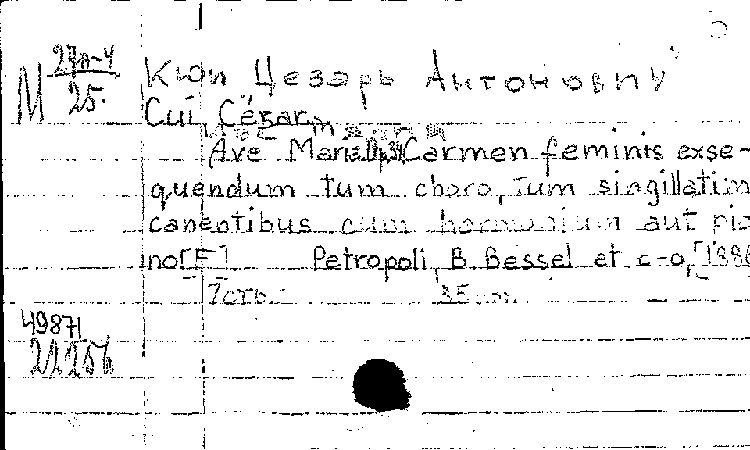 М 27п-4
25.
Кюи Цезарь Антонович
Cui, César.
Ave Maria Op.34 Carmen feminis exse-
quendum tum choro, tum singillatim
canentibus cum harmonium aut pia
no[F] Petropoli, B. Bessel et c-o, [1886
7стр. 35 см.
49871
22256